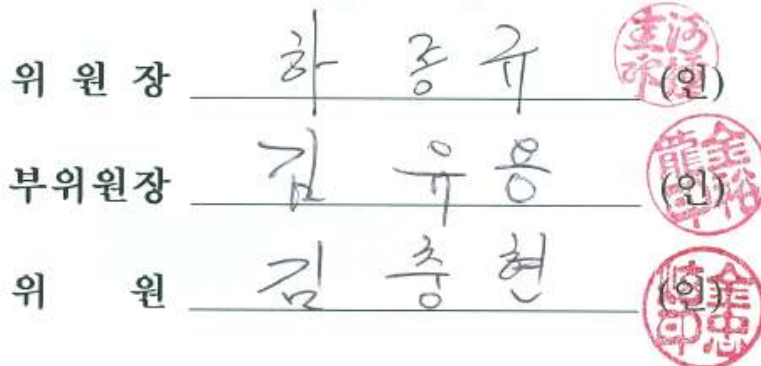 위 원 장 하 종 규 (인)
부위원장 김 유 용 (인)
위 원 김 충 현 (인)